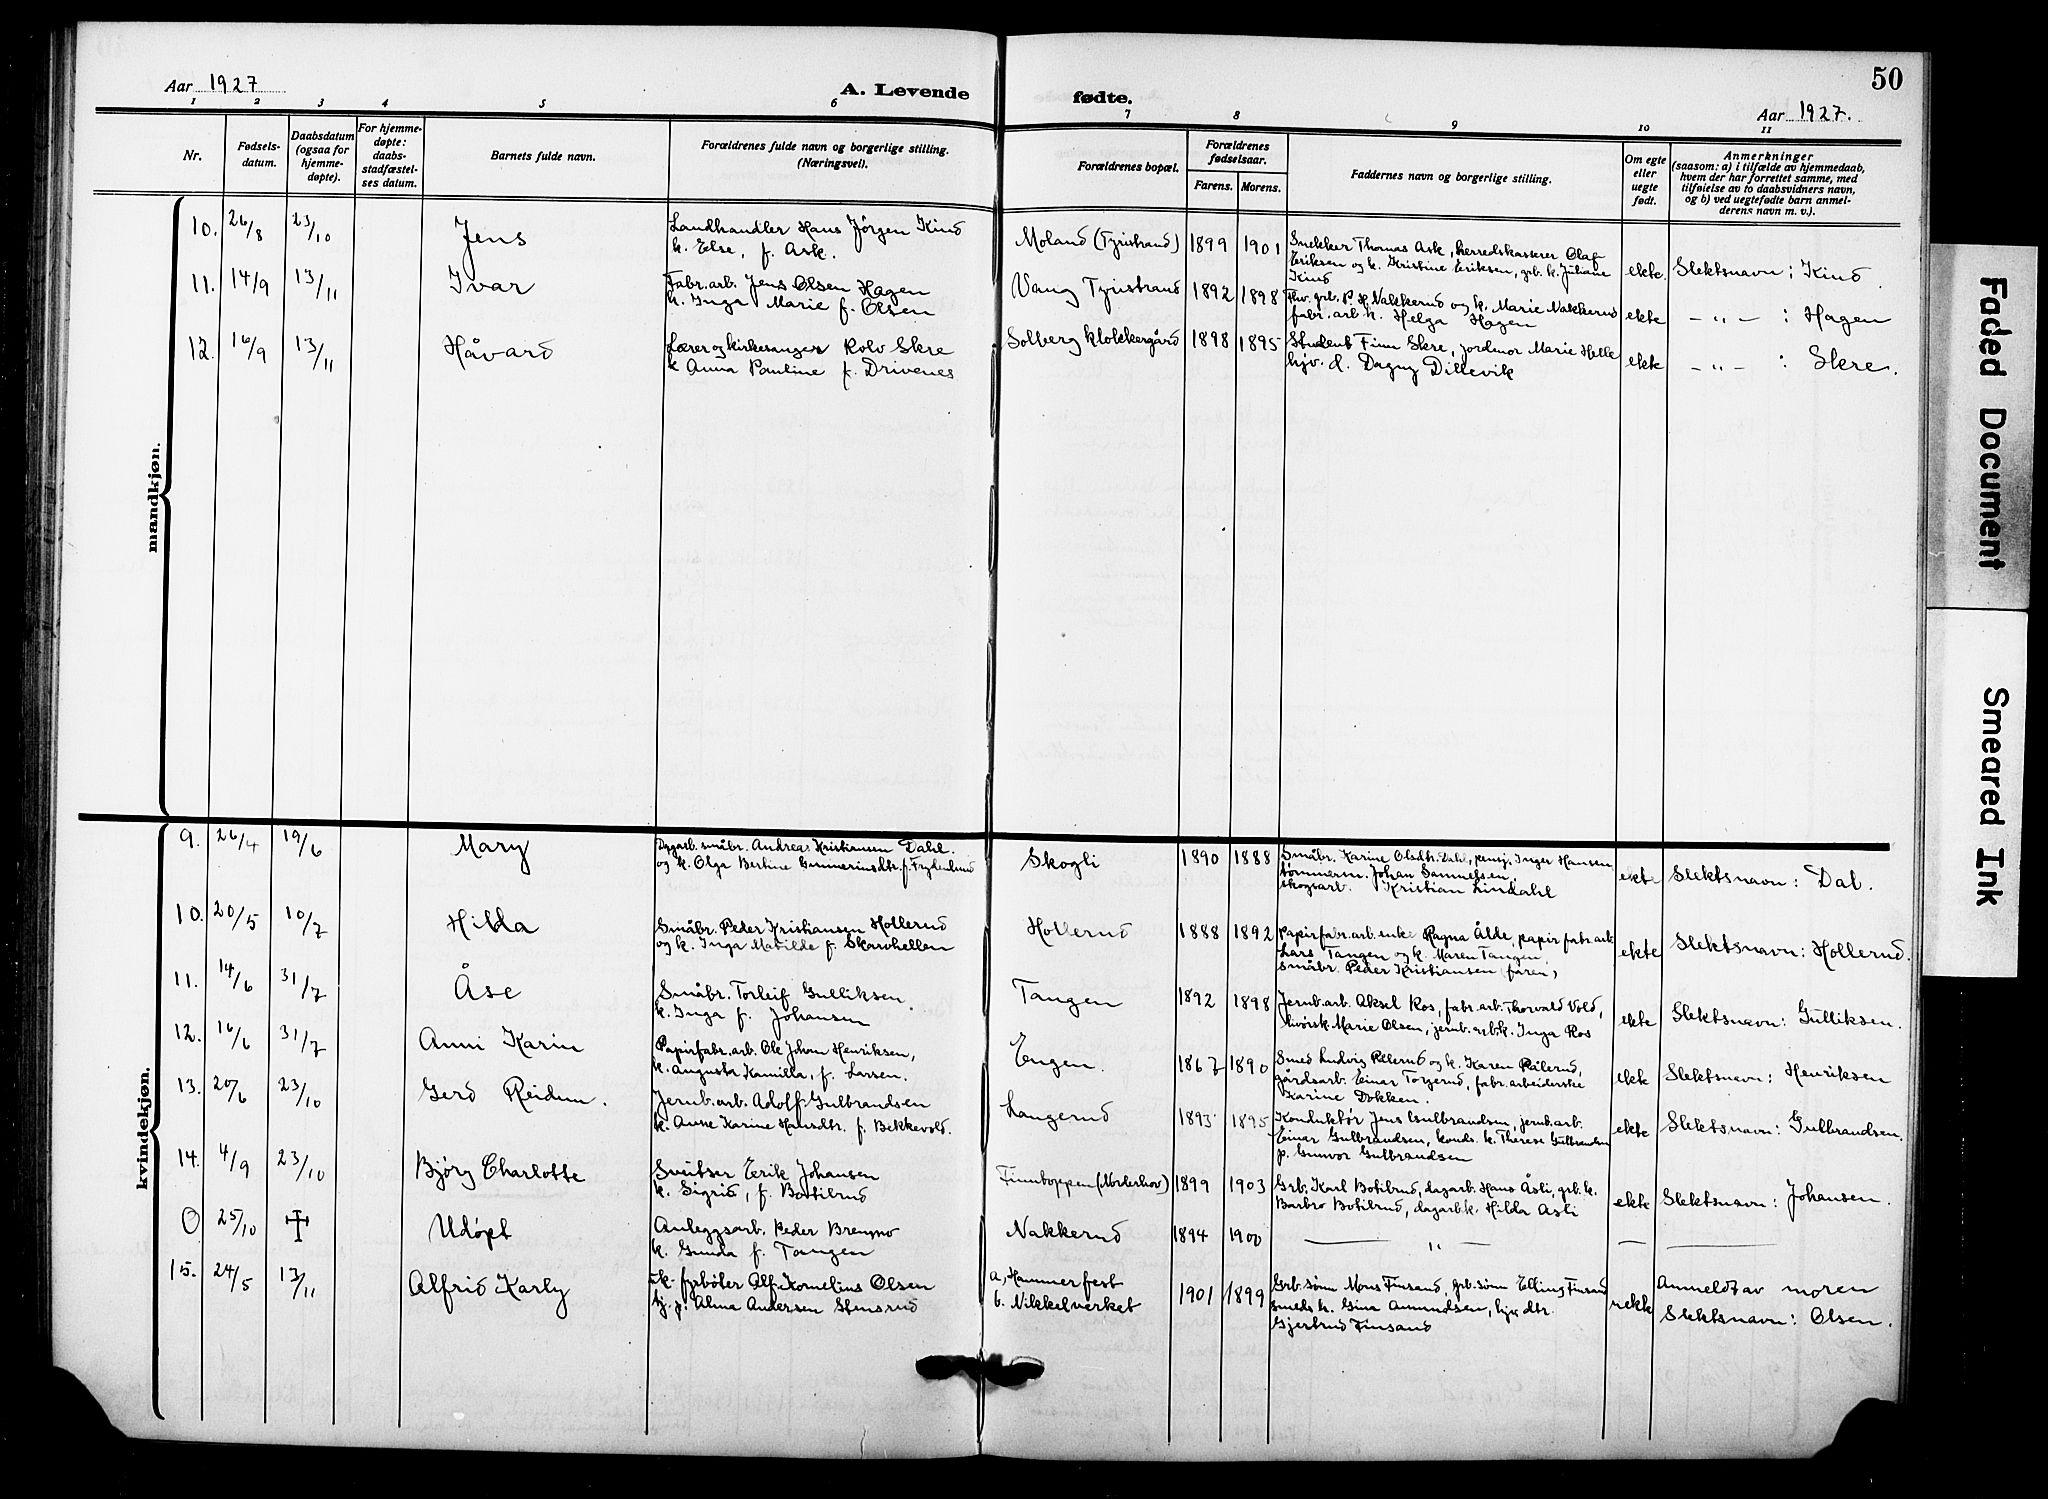 50
Aar 1927
A. Levende
fødte.
Aar 1927.
1 2 3 4 5 6 7 8 9 10 11
Nr.
Fødsels-
datum.
Daabsdatum
(ogsaa for
hjemme-
døpte).
For hjemme-
døpte:
daabs-
stadfæstel-
ses datum.
Barnets fulde navn.
Forældrenes fulde navn og borgerlige stilling.
(Næringsvei).
Forældrenes bopæl.
Forældrenes
fødselsaar.
Farens. Morens.
Faddernes navn og borgerlige stilling.
Om egte
eller
uegte
født.
Anmerkninger
(saasom: a) i tilfælde av hjemmedaab,
hvem der har forrettet samme, med
tilføielse av to daabsvidners navn,
og b) ved uegtefødte barn anmel-
derens navn m. v.).
mandkjøn.
10. 26/8 23/10 Jens
Landhandler Hans Jörgen Kind
k. Else, f. Ask.
Moland (Tyristrand) 1899 1901
Snekker Thomas Ask, herredskasserer Olaf
Eriksen og k. Kristine Eriksen, grb. k. Juliane
Kind
ekte. Slektsnavn: Kind.
11. 14/9 13/11 Ivar
Fabr.arb. Jens Olsen Hagen
k. Inga Marie f. Olsen
Vang Tyristrand 1892 1898
Fhv. grb. P. H. Nakkerud og k. Marie Nakkerud
fabr. arb. k. Helga Hagen
ekte - " - : Hagen
12. 16/9 13/11 Håvard
Lærer og kirkesanger Rolv Skre
k Anna Pauline f. Drivenes
Solberg klokkergård 1898 1895
Student Finn Skre, jordmor Marie Helle
hjv. d. Dagny Dillevik
ekte - " - : Skre.
kvindekjøn.
9. 26/4 19/6 Mary
Dagarb. småbr. Andreas Kristiansen Dahl.
og k. Olga Bertine Gunneriusdtr. f. Frydenlund
Skogli 1890 1888
Småbr. Karine Olsdtr. Dahl, pensj. Inger Hansen
tømmerm. Johan Samuelsen,
skogsarb. Kristian Lindahl
ekte Slektsnavn: Dal.
10. 20/5 10/7 Hilda
Småbr. Peder Kristiansen Hollerud
og k. Inga Matilde f. Skarohellen
Hollerud 1888 1892
Papirfabr. arb. enke Ragna Ålde, papirfabr. arb.
Lars Tangen og k. Maren Tangen,
småbr. Peder Kristiansen (faren)
ekte Slektsnavn: Hollerud.
11. 14/6 31/7 Åse
Småbr. Torleif Gulliksen.
k. Inga f. Johansen
Tangen 1892 1898
Jernb. arb. Aksel Ros, fabr. arb. Thorvald Vold,
Marie Olsen, jernb. arb. k. Inga Ros
ekte Slektsnavn: Gulliksen.
12. 16/6 31/7 Anni Karin
Papirfabr. arb. Ole Johan Henriksen,
k. Augusta Kamilla, f. Larsen.
Engen. 1867 1890
Smed Ludvig Pålerud og k. Karen Pålerud,
gårdsarb. Einar Torgerud, fabr. arbeiderske
Karine Dokken.
ekte Slektsnavn: Henriksen
13. 20/6 23/10 Gerd Reidun.
Jernb. arb. Adolf Gulbrandsen
k. Anne Karine Hansdtr. f. Bekkevold.
Langerud 1893 1895
Konduktör Jens Gulbrandsen, jernb. arb.
Einar Gulbrandsen, kond. k. Therese Gulbrandsen
p. Gunvor Gulbrandsen
ekte Slektsnavn: Gulbrandsen.
14. 4/9 23/10 Björg Charlotte
Sveitser Erik Johansen
k. Sigrid, f. Botilrud
Finntoppen (Norderhov) 1899 1903
Grb. Karl Botilrud, dagarb. Hans Åsli, grb. k.
Barbro Botilrud, dagarb. k. Hilda Åsli
ekte Slektsnavn: Johansen.
0 25/10 ✝ Udöpt
Anleggsarb. Peder Bremmo
k. Gunda f. Tangen
Nakkerud 1894 1900
— " — —
15. 24/5 13/11 Alfrid Karly
u.k. fyrböter Alf Kornelius Olsen
tj. p. Alma Andersen Stensrud
a, Hammerfest
b. Nikkelverket
1901 1899
Grb. sönn Mons Finsand, grb. sönn Elling Finsand
smeds k. Gina Amundsen, hjv. dtr.
Gjertrud Finsand
uekte Anmeldt av moren
Slektsnavn: Olsen.
Faded Document
Smeared Ink